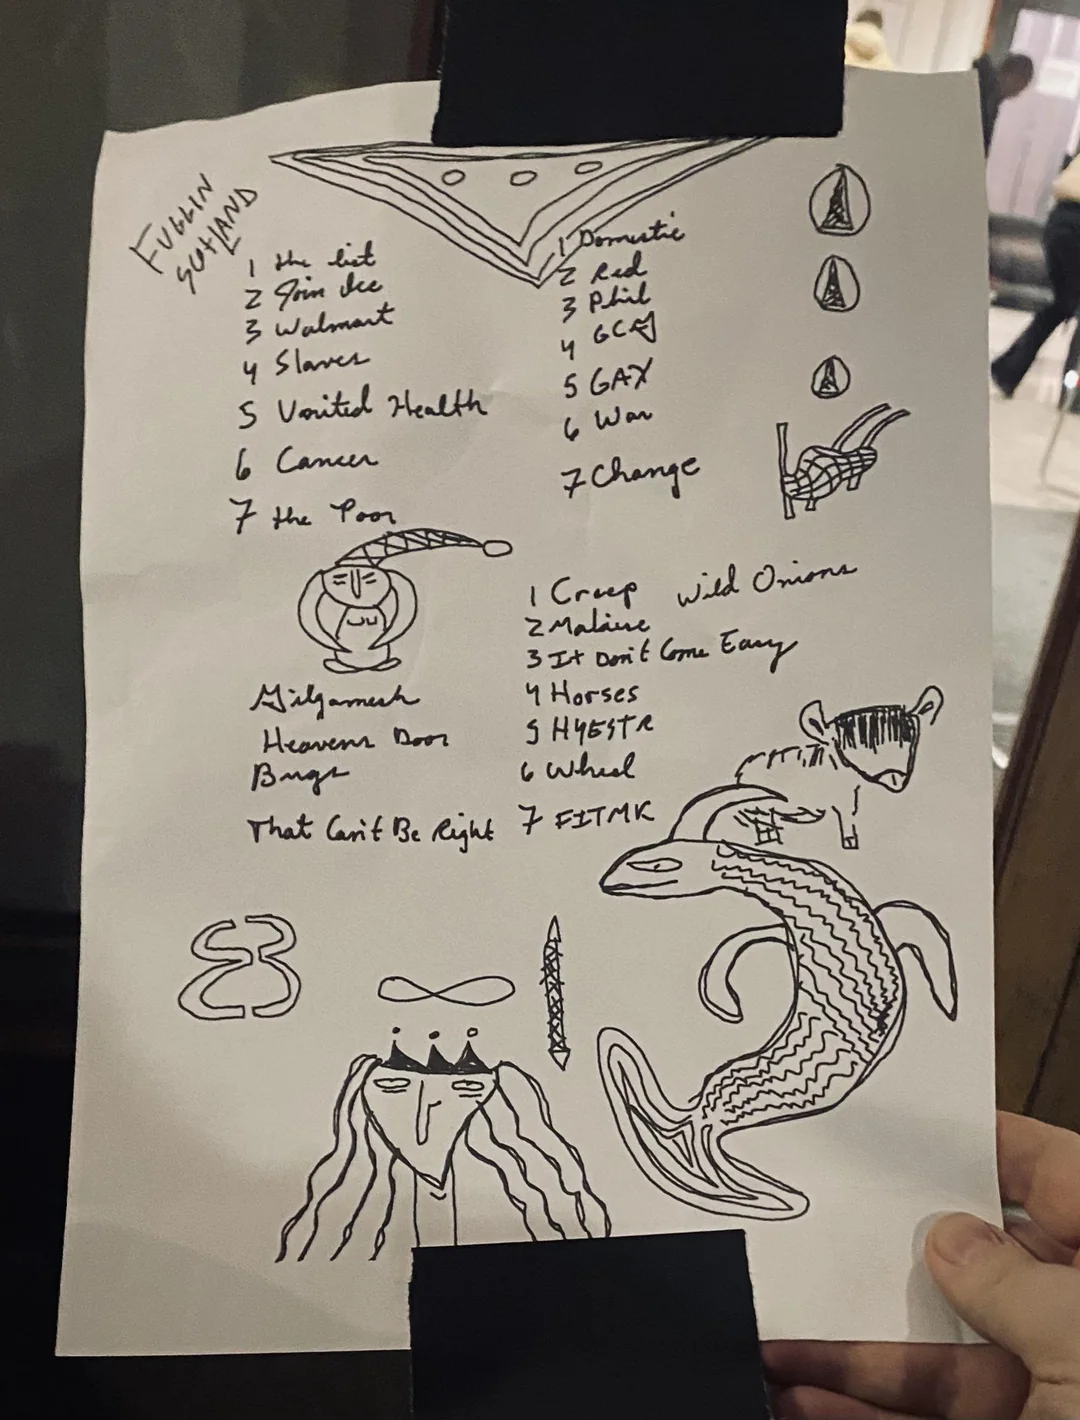 FUGGIN
SCOTLAND
1 the list
2 Join Ice
3 Walmart
4 Slaves
5 United Health
6 Cancer
7 the Poor
1 Domestic
2 Red
3 Phil
4 GCM
5 GAX
6 War
7 Change
Gilgamesh
Heavens Door
Bugs
That Can't Be Right
1 Creep Wild Onions
2 Malaise
3 It Don't Come Easy
4 Horses
5 HYESTR
6 Wheel
7 FITMK